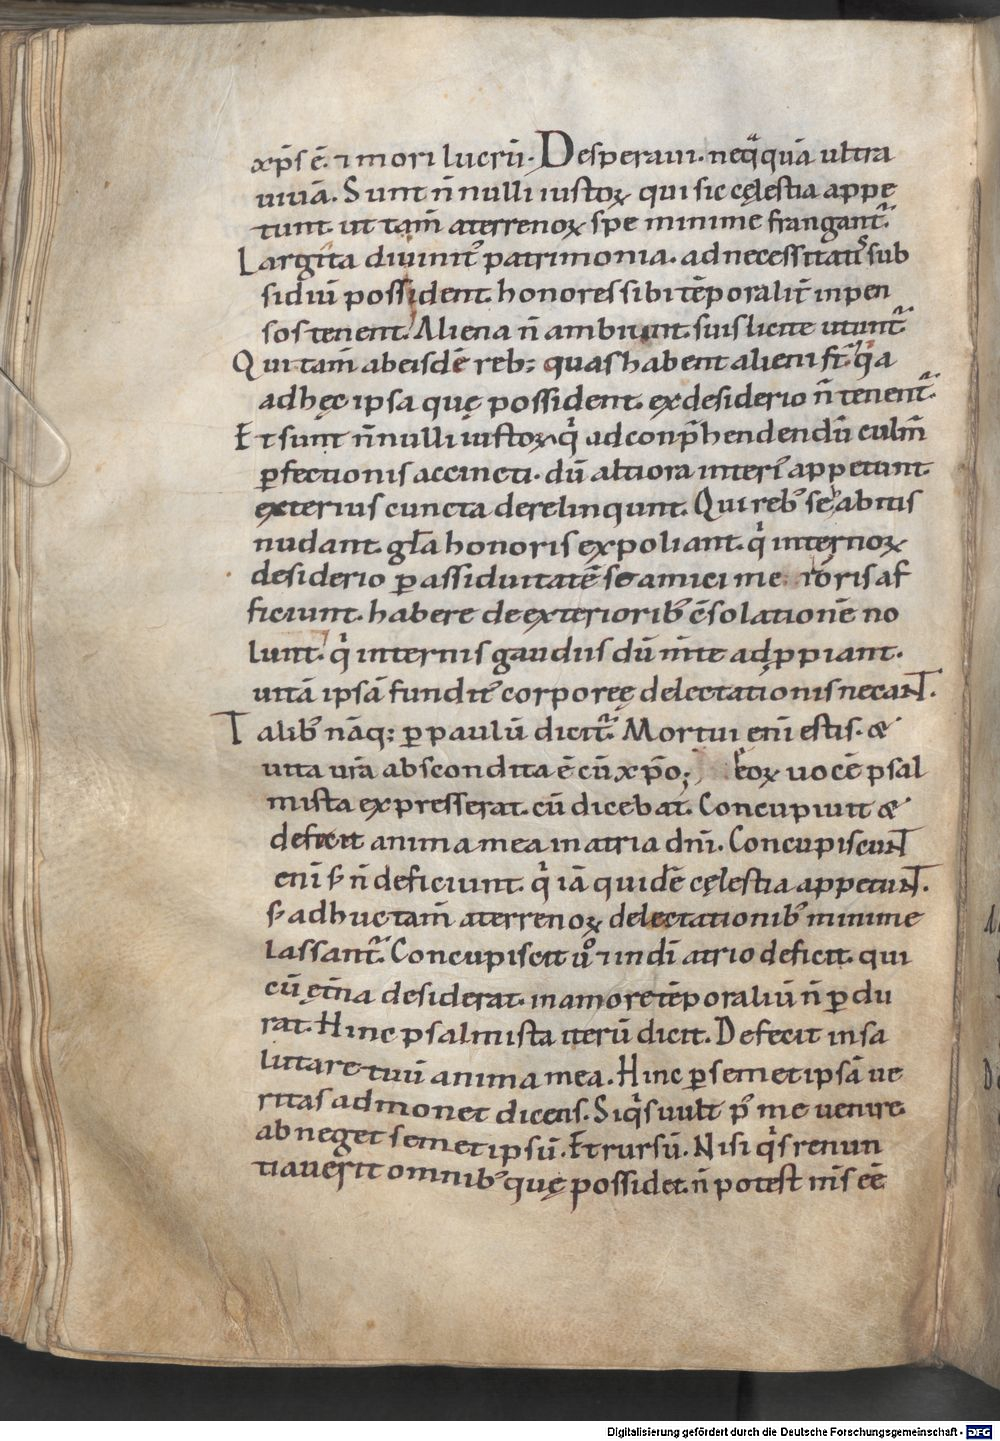 xp̄s ē. ⁊ mori lucrū. Desperaui. neq̄quā ultra
uiuā. Sunt n̄nulli iustoꝝ qui sic cęlestia appe
tunt. ut tam̄ a terrenoꝝ spe minime frangant᷑.
Largita diuinit᷑ patrimonia. ad necessitatis sub
sidiū possident. honores sibi tēporalit᷑ inpen
sos tenent. Aliena n̄ ambiunt. suis licite utunt᷑.
Qui tam̄ ab eisdē reb; quas habent alieni s̄t. q̄a
ad hęc ipsa quę possident. ex desiderio n̄ tenent᷑.
Et sunt n̄nulli iustoꝝ. qͥ ad conp̄hendendū culm̄
ꝑfectionis accincti. dū altiora interi᷑ appetunt.
exterius cuncta derelinquunt. Qui reb᷒ se habitis
nudant. gl̄a honoris expoliant. qͥ internoꝝ
desiderio ꝑ assiduitatē se amici me roris af
ficiunt. habere de exteriorib᷒ c̄solationē no
lunt. qͥ internis gaudiis dū m̄te adꝓpiant.
uitā ipsā fundit᷑ corporeę delectationis necant.
Talib᷒ nāq; ꝑ paulū dicit᷑. Mortui eni᷑ estis. &
uita ur̄a abscondita ē cū xp̄o; eoꝝ uocē psal
mista expresserat. cū dicebat. Concupiuit &
deficit anima mea in atria dn̄i. Concupiscunt
eni᷑ s; n̄ deficiunt. qͥ iā quidē cęlestia appetunt.
s; adhuc tam̄ a terrenoꝝ delectationib᷒ minime
lassant᷑. Concupiscit uͦ ⁊ in dn̄i atrio deficit. qui
cū ęt̄na desiderat. in amore tēporaliū n̄ ꝑdu
rat. Hinc psalmista iterū dicit. Defecit in sa
lutare tuū anima mea. Hinc ꝑ semet ipsā ue
ritas admonet dicens. Si qͥs uult p᷒ me uenire.
abneget semet ipsū. Et rursū. Nisi qͥs renun
tiauerit omnib᷒ quę possidet. n̄ potest m̄s eē
Digitalisierung gefördert durch die Deutsche Forschungsgemeinschaft - DFG